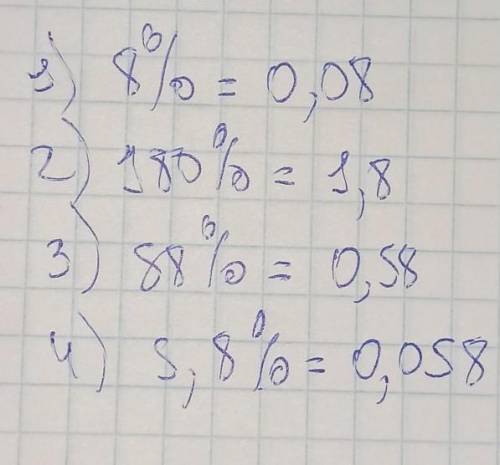 1) 8% = 0,08
2) 180% = 1,8
3) 58% = 0,58
4) 5,8% = 0,058